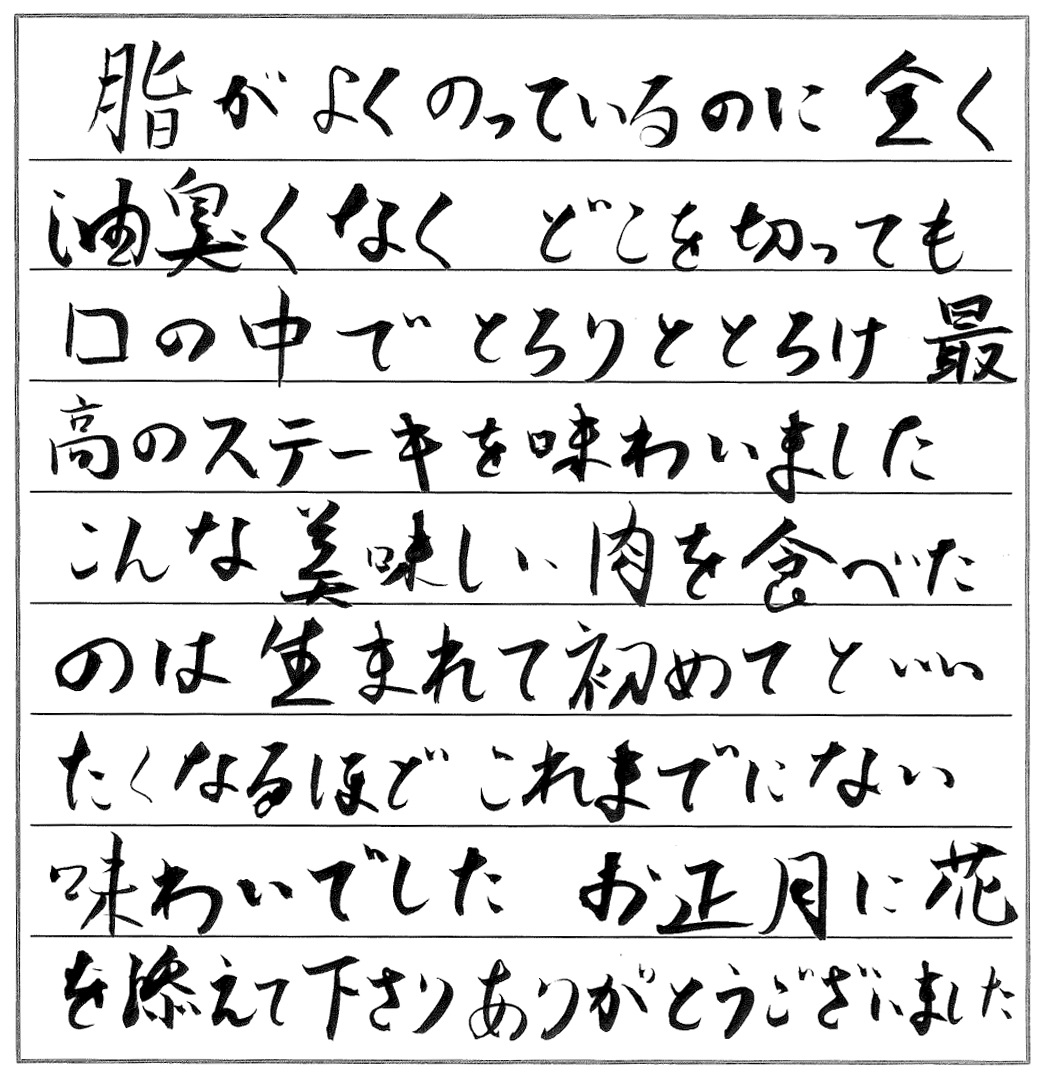 脂がよくのっているのに全く
油臭くなく どこを切っても
口の中でとろりととろけ 最
高のステーキを味わいました
こんな美味しい肉を食べた
のは生まれて初めてといい
たくなるほど これまでにない
味わいでした お正月に花
を添えて下さりありがとうございました